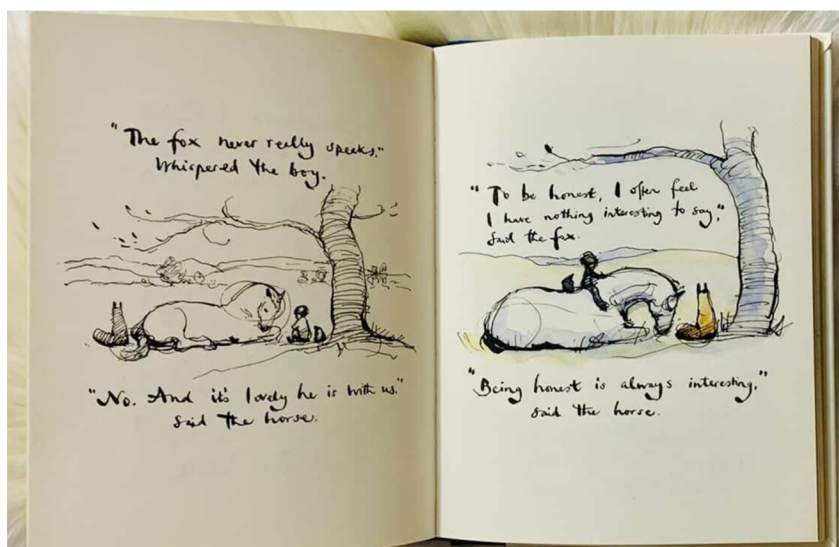 "The fox never really speaks."
Whispered the boy.
"No. And it's lovely he is with us."
Said the horse.
"To be honest, I often feel
I have nothing interesting to say,"
Said the fox.
"Being honest is always interesting,"
said the horse.